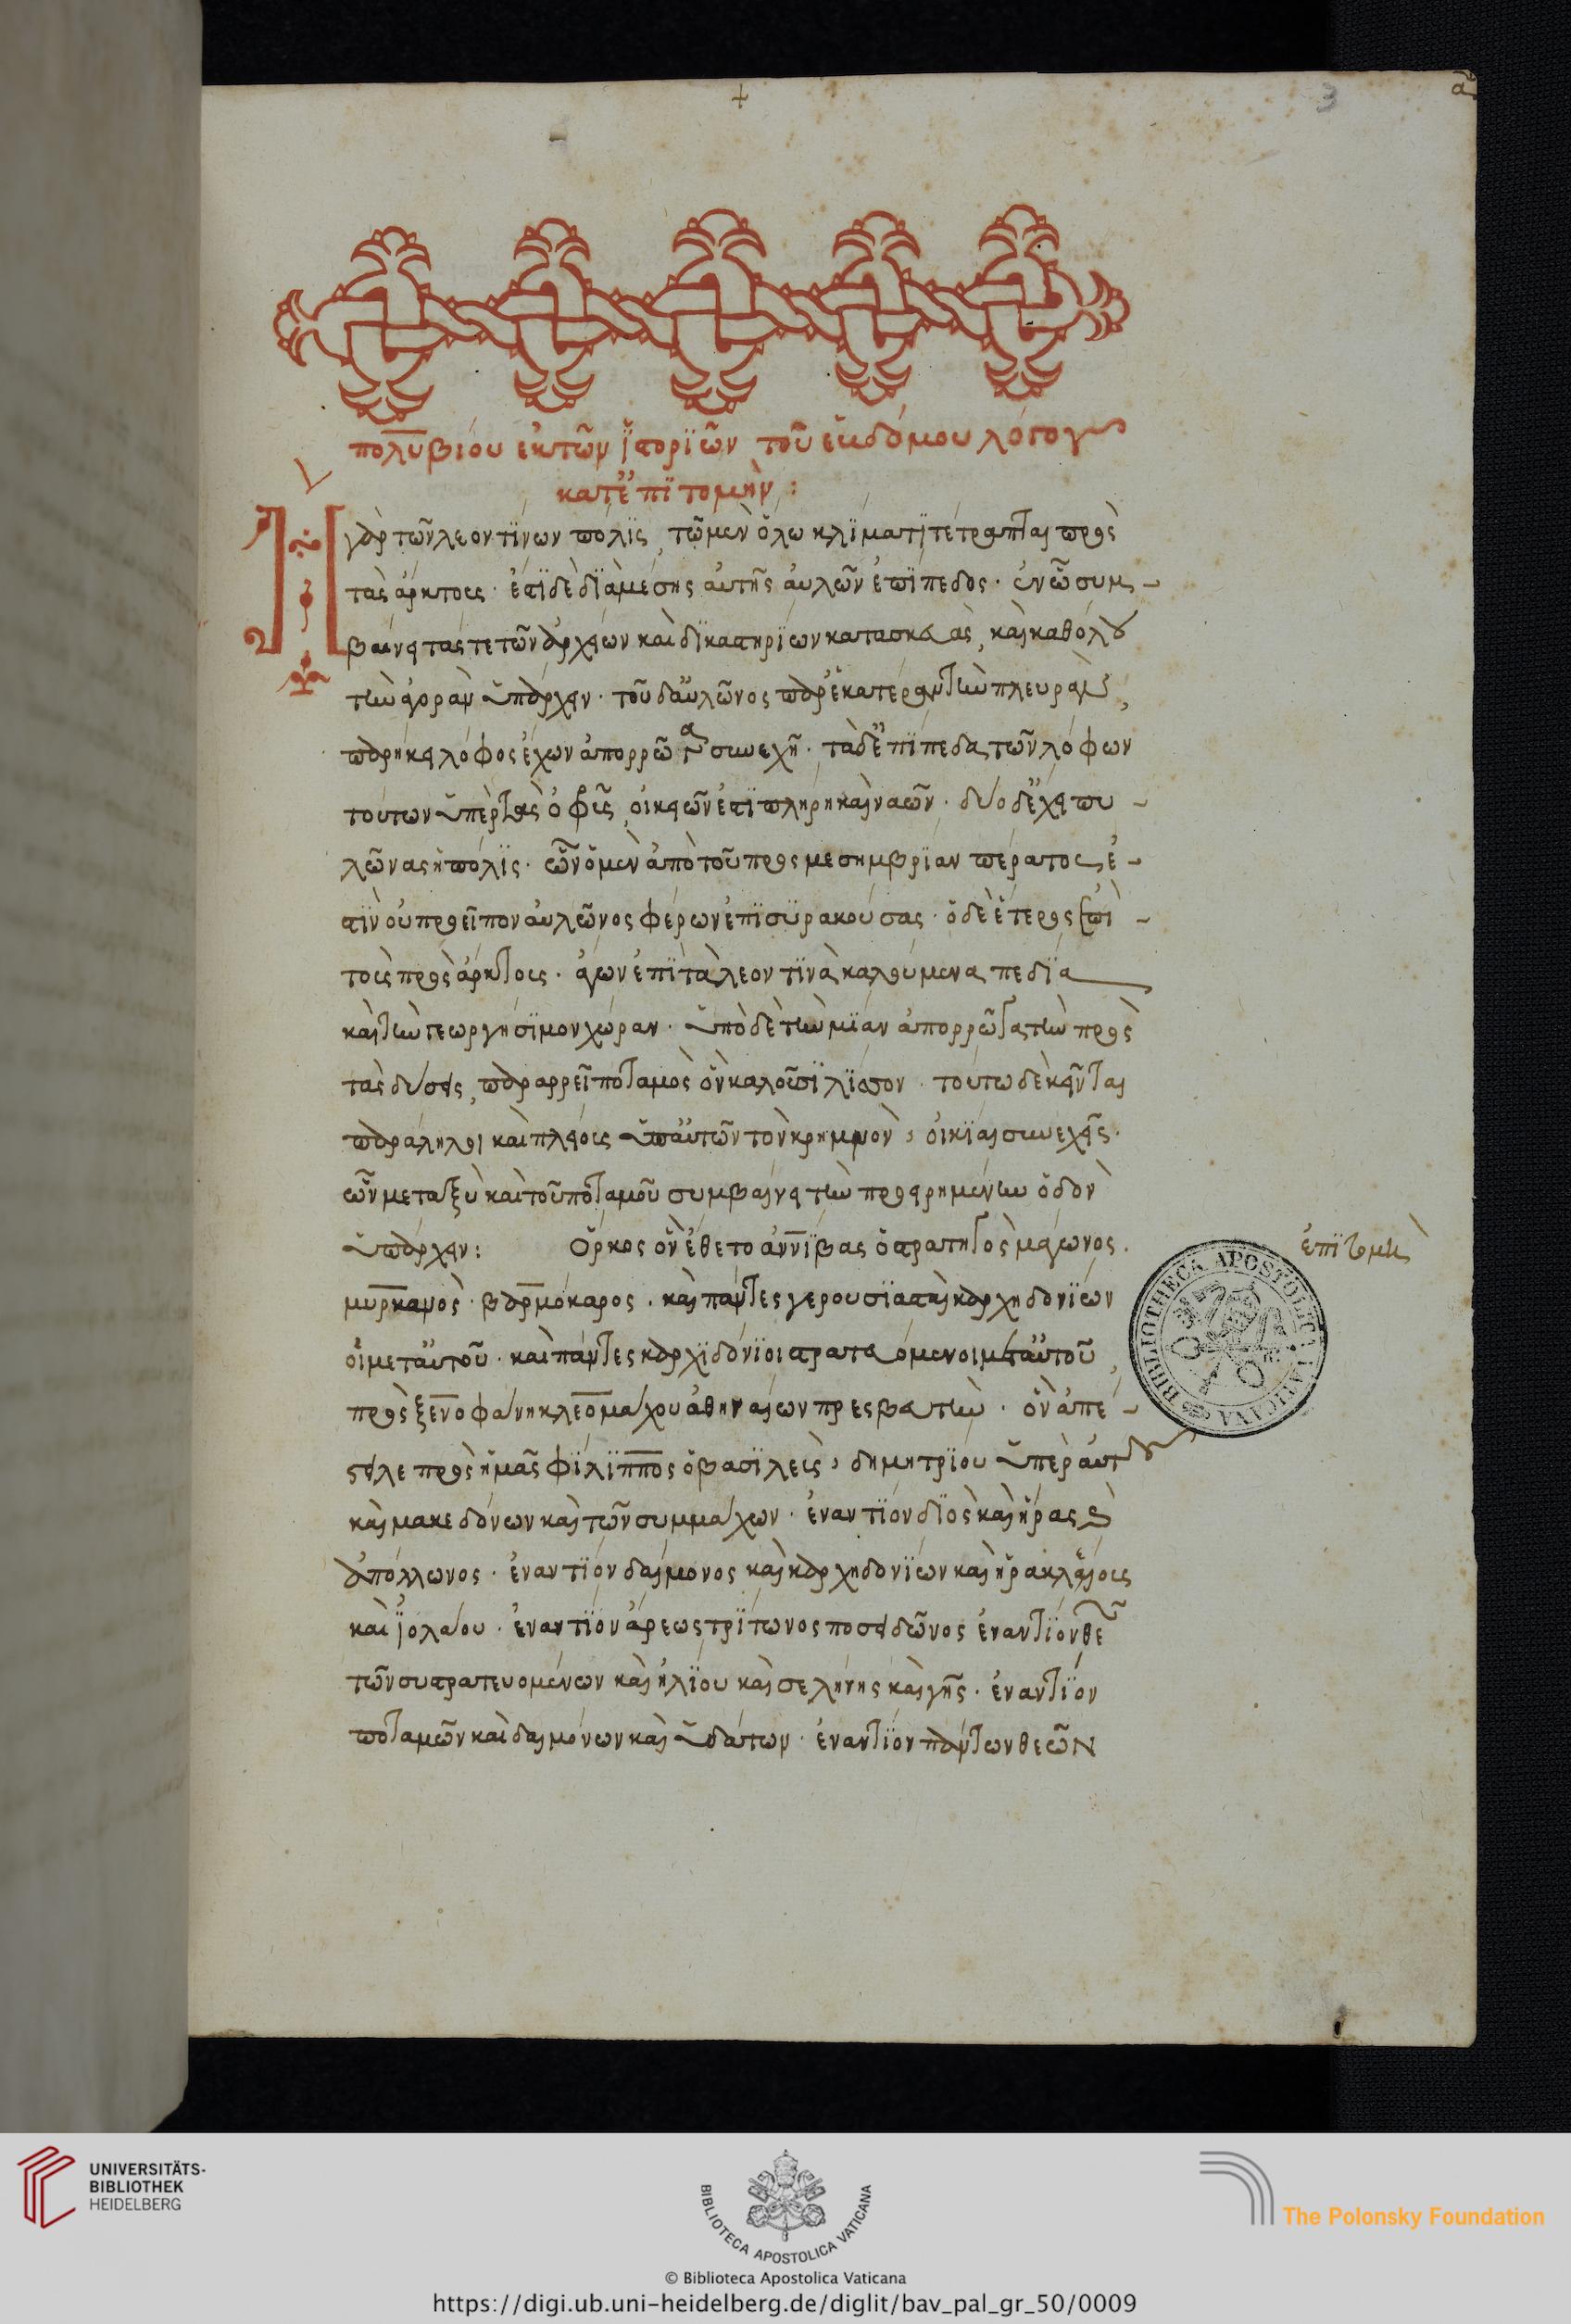 3
πολυβίου ἐκ τῶν ἱστοριῶν τοῦ ἑβδόμου λόγου
κατ' ἐπιτομήν :
Ἡ γὰρ τῶν λεοντίνων πόλις, τῶ μὲν ὅλω κλίματι τέτραπται πρὸς
τὰς ἄρκτους · ἔστι δὲ διὰ μέσης αὐτῆς αὐλὼν ἐπίπεδος · ἐν ὧ συμ-
βαίνει τάς τε τῶν ἀρχείων καὶ δικαστηρίων κατασκευὰς, καὶ καθόλου
τὴν ἀγορὰν ὑπάρχειν · τοῦ δ' αὐλῶνος παρ' ἑκατέραν τὴν πλευρὰν,
παρήκει λόφος ἔχων ἀπορρῶγα συνεχῆ · τὰ δ' ἐπίπεδα τῶν λόφων
τούτων ὑπὲρ τὰς ὀφρῦς, οἰκειῶν ἐστὶ πλήρη καὶ ναῶν · δύο δ' ἔχει πυ-
λῶνας ἡ πόλις · ὧν ὁ μὲν ἀπὸ τοῦ πρὸς μεσημβρίαν πέρατος ἐ-
στὶν οὗ προεῖπον αὐλῶνος φέρων ἐπὶ συρακούσας · ὁ δὲ ἕτερος ἐπὶ
τοὺς πρὸς ἄρκτους · ἄγων ἐπὶ τὰ λεοντινὰ καλούμενα πεδία
καὶ τὴν γεωργήσιμον χώραν · ὑπὸ δὲ τὴν μίαν ἀπορρῶγα τὴν πρὸς
τὰς δύσεις, παραρρεῖ ποταμὸς ὃν καλοῦσι λίσσον · τούτω δὲ κεῖνται
παράληλοι καὶ πλείους ὑπ' αὐτῶν τὸν κρημνὸν, οἰκίαι συνεχεῖς ·
ὧν μεταξὺ καὶ τοῦ ποταμοῦ συμβαίνει τὴν προειρημένην ὁδὸν
ὑπάρχειν : Ὅρκος ὃν ἔθετο ἀννίβας ὁ στρατηγὸς μάγωνος ·
ἐπιτομὴ
μύρκανος · βαρμόκαρος · καὶ πάντες γερουσιασταὶ καρχηδονίων
οἱ μετ' αὐτοῦ · καὶ πάντες καρχιδόνιοι στρατευόμενοι μετ' αὐτοῦ,
πρὸς ξενοφάνη κλεομάχου ἀθηναίων πρεσβευτὴν · ὃν ἀπέ-
στειλε πρὸς ἡμᾶς φίλιππος ὁ βασιλεὺς, δημητρίου ὑπὲρ αὐτοῦ
καὶ μακεδόνων καὶ τῶν συμμάχων · ἐναντίον διὸς καὶ ἥρας καὶ
ἀπόλλωνος · ἐναντίον δαίμονος καὶ καρχηδονίων καὶ ἡρακλέους
καὶ ἰολάου · ἐναντίον ἄρεως τρίτωνος ποσειδῶνος ἐναντίον θε
τῶν συστρατευομένων καὶ ἡλίου καὶ σελήνης καὶ γῆς · ἐναντίον
ποταμῶν καὶ δαιμόνων καὶ ὑδάτων · ἐναντίον πάντων θεῶν
BIBLIOTHECA APOSTOLICA VATICANA
UNIVERSITÄTS-
BIBLIOTHEK
HEIDELBERG
BIBLIOTECA APOSTOLICA VATICANA
The Polonsky Foundation
© Biblioteca Apostolica Vaticana
https://digi.ub.uni-heidelberg.de/diglit/bav_pal_gr_50/0009